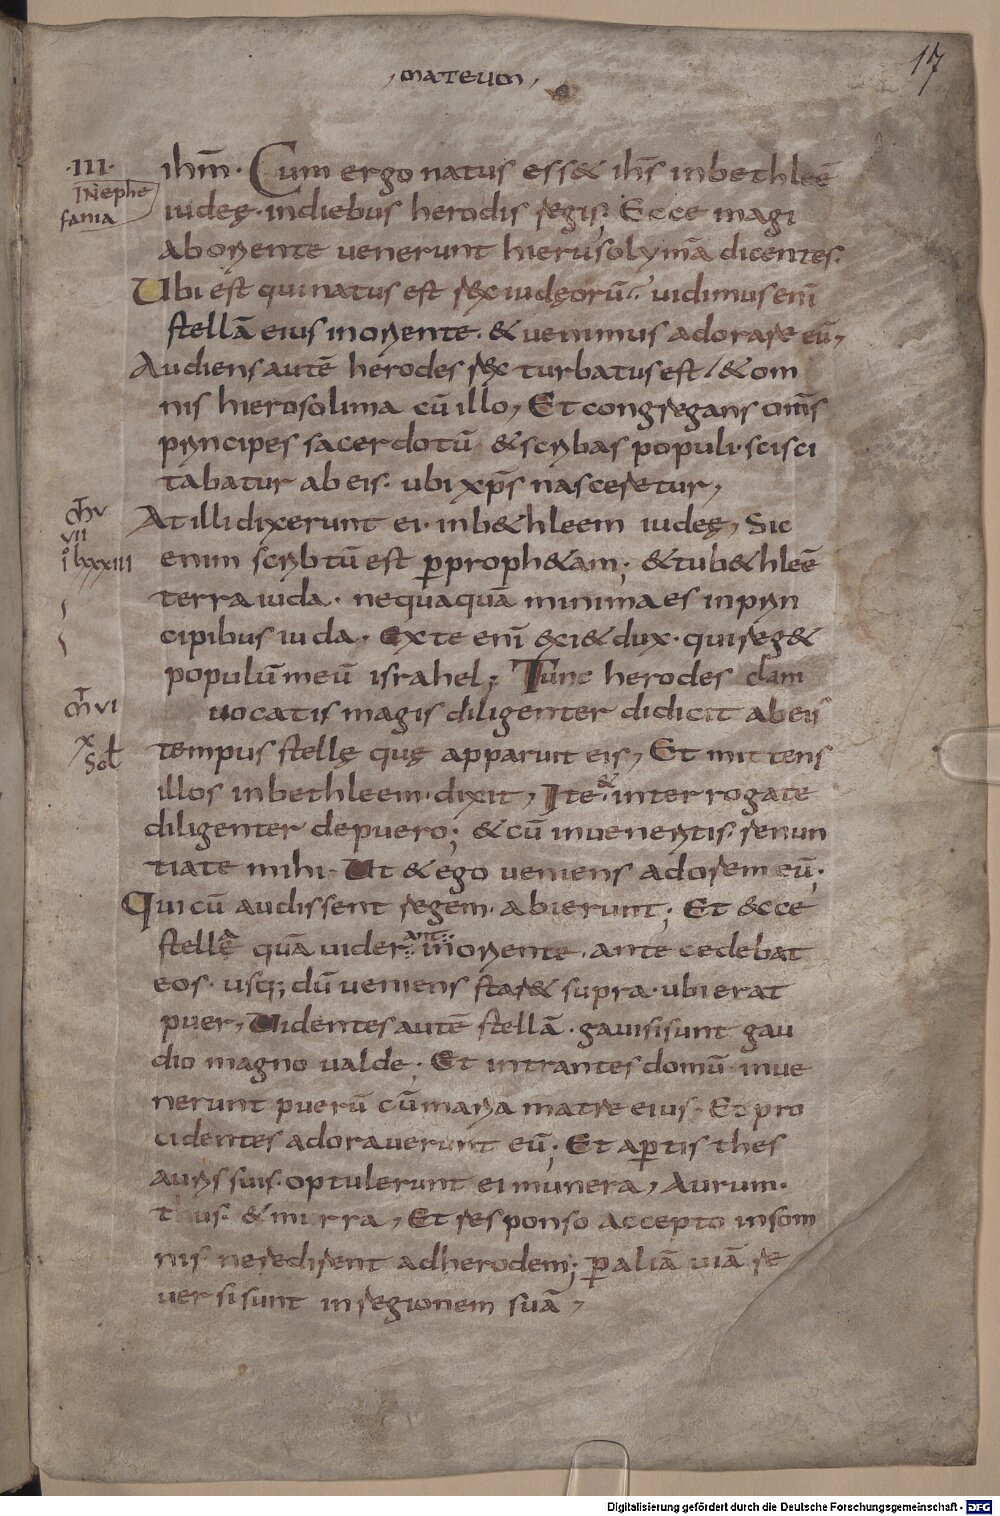 , mateum ,
17
·III· ihm̄· Cum ergo natus ess& ihs̄ inbethleē
INephe
fania iudeę· indiebus herodis regis; Ecce magi
aboriente venerunt hierusolymā dicentes:
Ubi est quinatus est rex iudęorū· uidimus enī
stellā eius inoriente· & venimus adorare eū,
Audiens autē herodes rex turbatus est / & om
nis hierosolima cū illo, Et congregans om̄s
principes sacerdotū & scribas populi· scisci
tabatur ab eis· ubi xp̄s nasceretur,
At illi dixerunt ei· inb&hleem iudeę, Sic
enim scribtū est p̲proph&am; & tub&hleē
lxxxiii
terra iuda· nequaquā minima es inprin
cipibus iuda· ex te enī exi& dux· qui reg&
populū meū israhel; Tunc herodes clam
vi
uocatis magis diligenter didicit abeis
tempus stellę quę apparuit eis, Et mittens
illos inbethleem· dixit, Ite· & interrogate
diligenter depuero; & cū inveneritis· renun
tiate mihi· Ut & ego veniens adorem eū;
Qui cū audissent regem· abierunt; Et ecce
stella quā uiderant inoriente· antecedebat
eos· usq; dū veniens star& supra· ubi erat
puer, Uidentes autē stellā· gauisi sunt gau
dio magno valde· Et intrantes domū inve
nerunt puerū cū maria matre eius· Et pro
cidentes adoraverunt eū; Et ap̲tis thes
auris suis· optulerunt ei munera, Aurum·
thus· & mirra, Et responso accepto insom
nis neredirent adherodem; p̲ aliā viā re
versi sunt inregionem suā,
Digitalisierung gefördert durch die Deutsche Forschungsgemeinschaft - DFG